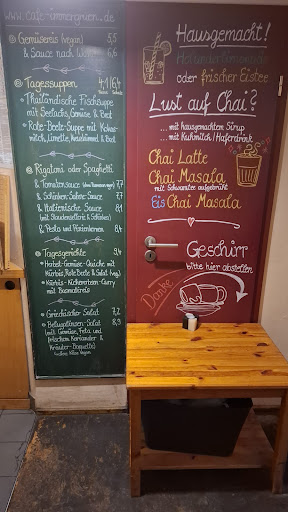 www.cafe-immergruen.de
Gemüsereis (vegan) 5,5
& Sauce nach Wahl 6,6
Tagessuppen 4,1/6,4
Thailändische Fischsuppe
mit Seelachs, Gemüse & Brot
Rote-Beete-Suppe mit Kokos-
milch, Limette, Kreuzkümmel & Brot
Rigatoni oder Spaghetti
& Tomatensauce 7,7
& Schinken-Sahne-Sauce 7,9
& Italienische Sauce 8,1
(mit Staudensellerie & Schinken)
& Pesto und Pinienkernen 8,4
Tagesgerichte 9,4
Herbst-Gemüse-Quiche mit
Kürbis, Rote Beete & Salat
Kürbis-Kichererbsen-Curry
mit Basmatireis
Griechischer Salat 7,2
Belugalinsen-Salat 8,3
(mit Gemüse, Feta und
frischem Koriander &
Kräuter-Baguette)
Hausgemacht!
Holunderlimonade
oder frischer Eistee
Lust auf Chai?
... mit hausgemachtem Sirup
... mit Kuhmilch / Haferdrink
Chai Latte
Chai Masala
mit Schwarztee aufgebrüht
Eis Chai Masala
Geschirr
bitte hier abstellen
Danke